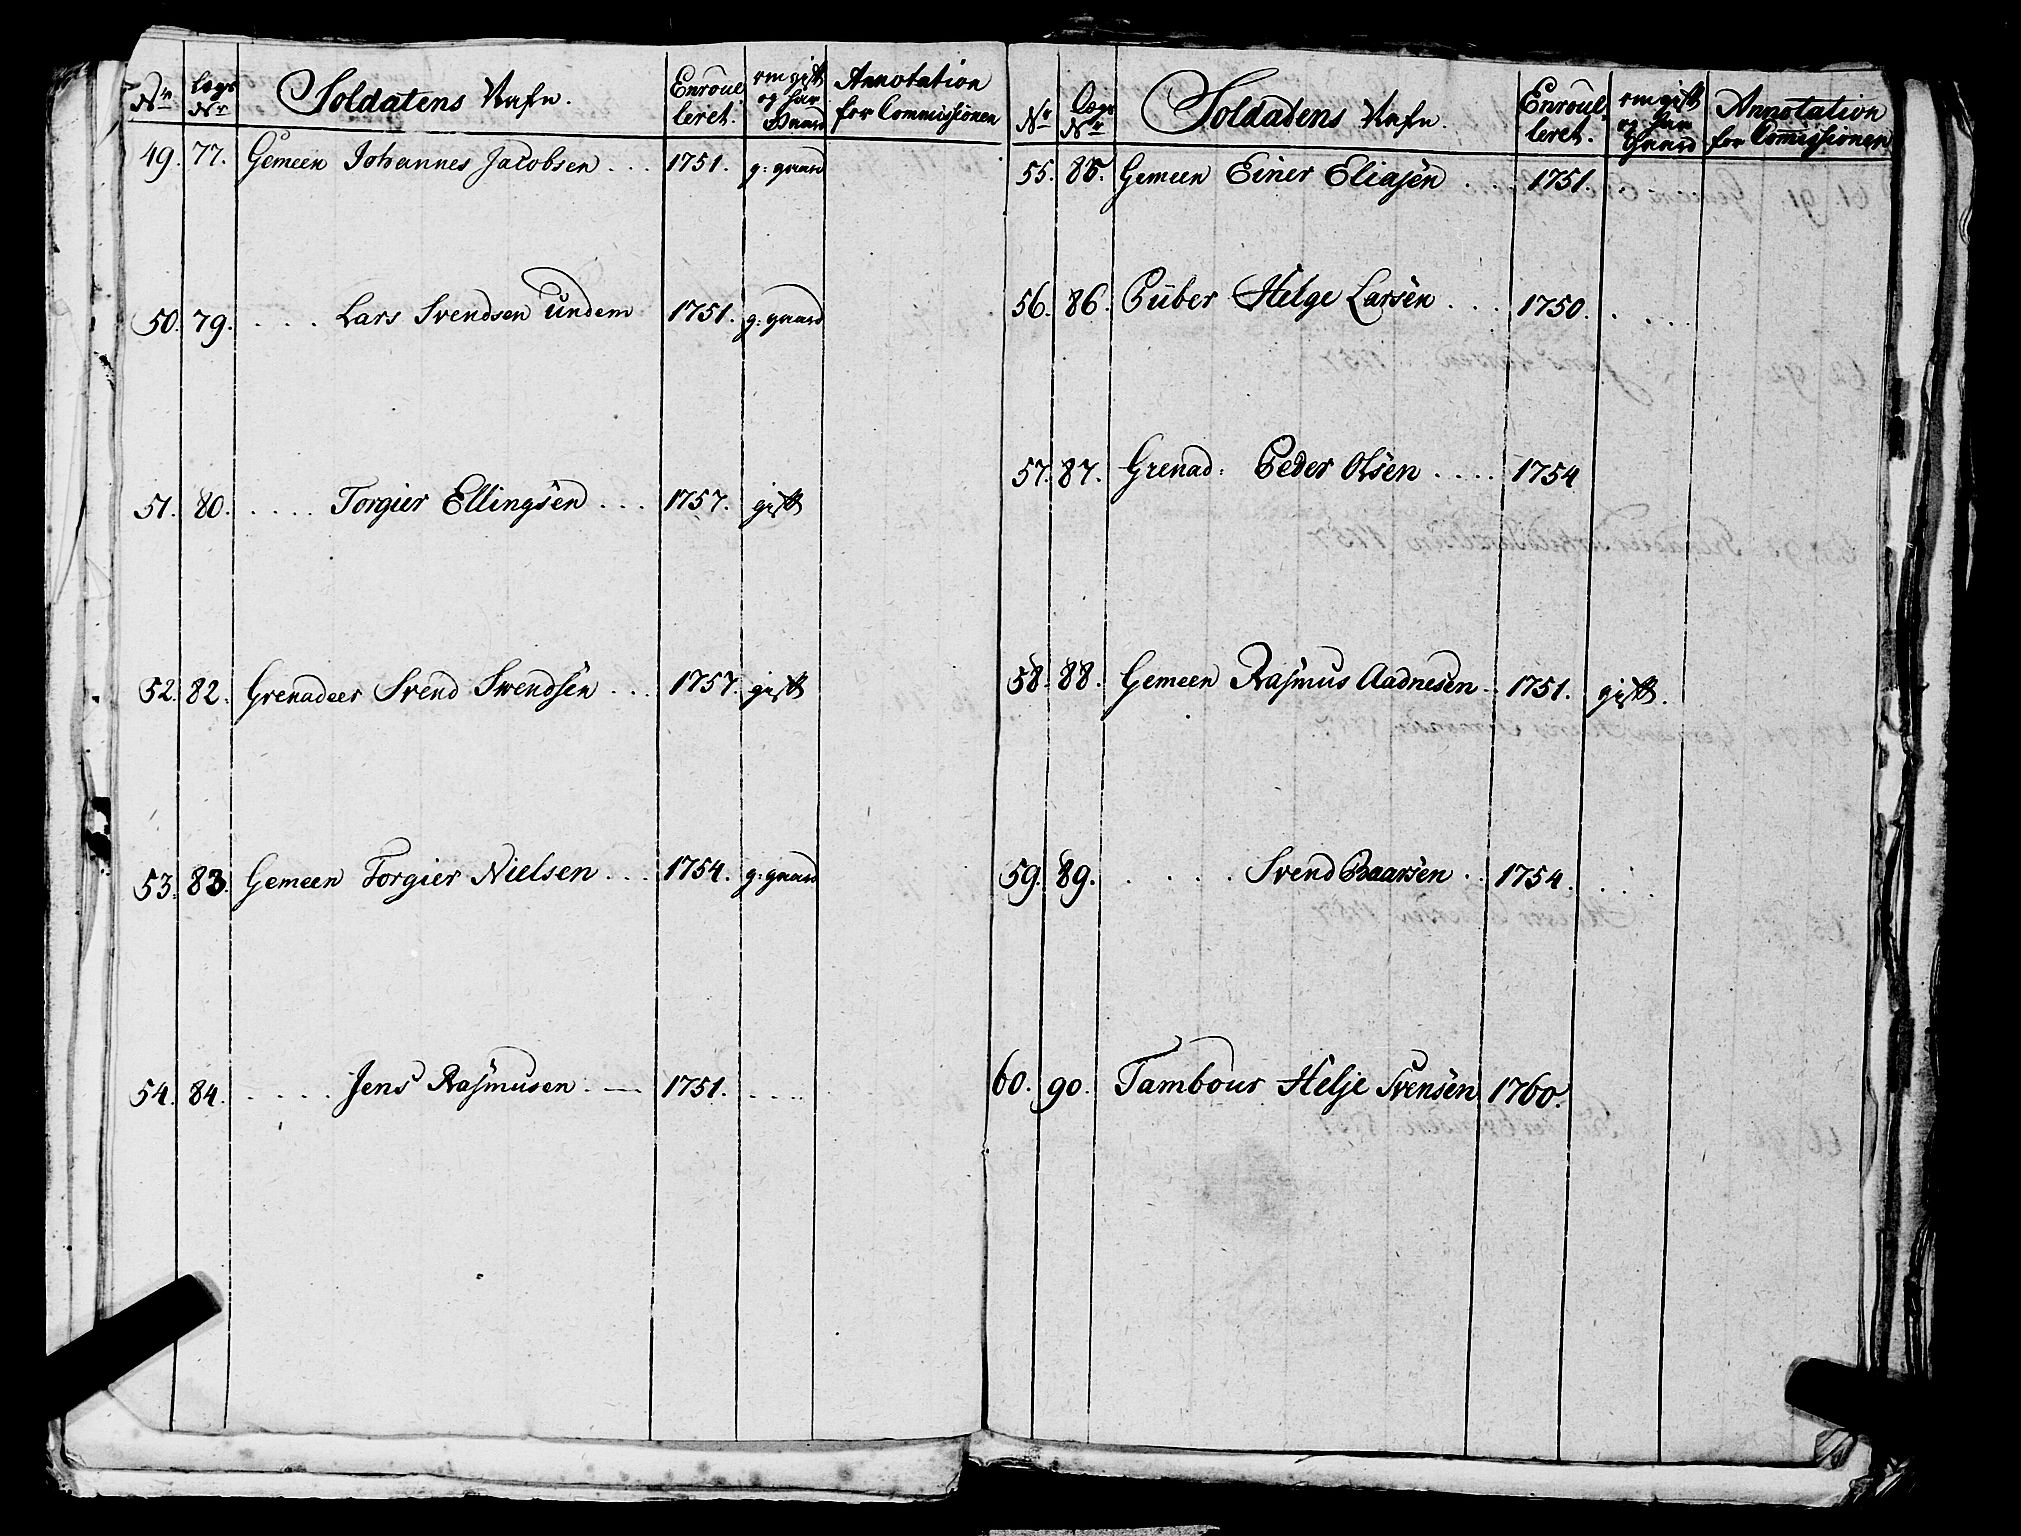 Nr. Lægs Nr. Soldatens Nafn. Enroulleret. om gift og har Gaard Annotation for Commissionen
49. 77. Gemeen Johannes Jacobsen . . . 1751. g: gaard
50. 79. . . . . Lars Svendsen Undem 1751. g: gaard
51. 80. . . . . . Torgier Ellingsen . . . 1757. gift
52. 82. Grenadeer Svend Svendsen . . . 1757. gift
53. 83. Gemeen Torgier Nielsen . . . 1754. g: gaard
54. 84. . . . . . Jens Rasmusen . — 1751. . . . .
Nr. Lægs Nr. Soldatens Nafn. Enroulleret. om gift og har Gaard Annotation for Comissionen
55. 85. Gemeen Einer Eliasen . . . 1751. .
56. 86. Piiber Helge Larsen . . . 1750. . . . .
57. 87. Grenad: Peder Olsen . . . . 1754
58. 88. Gemeen Rasmus Aadnesen . . 1751. gift.
59. 89. . . . . . Svend Baarsen . . 1754. . . .
60. 90. Tambour Helje Svensen 1760.